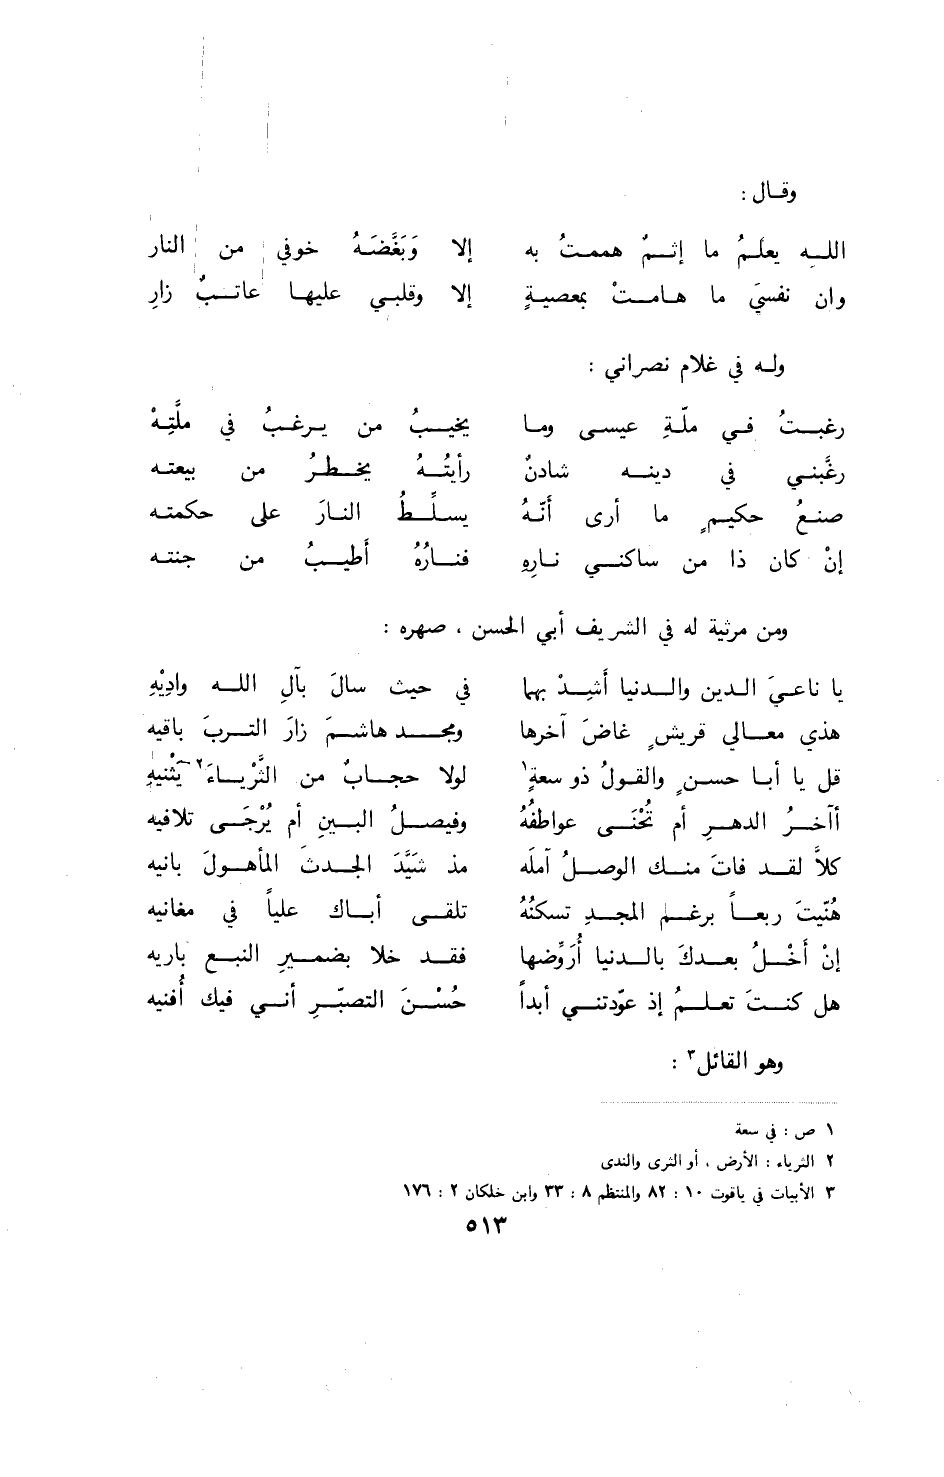 وقال :
الله يعلمُ ما إثمٌ هممتُ به إلا وَبَغَّضَهُ خوفي من النار
وان نفسيَ ما هامتْ بمعصيةٍ إلا وقلبي عليها عاتبٌ زارِ
وله في غلام نصراني :
رغبتُ في ملّةِ عيسى وما يخيبُ من يرغبُ في ملَّتِهْ
رغَّبني في دينه شادنٌ رأيتُهُ يخطرُ من بيعته
صنعُ حكيمٍ ما أرى أنّهُ يسلّطُ النارَ على حكمته
إنْ كان ذا من ساكني نارِهِ فنارُهُ أطيبُ من جنته
ومن مرثية له في الشريف أبي الحسن ، صهره :
يا ناعيَ الدين والدنيا أَشِدْ بهما في حيث سالَ بآلِ الله وادِيْهِ
هذي معالي قريشٍ غاضَ آخرها ومجد هاشمَ زارَ التربَ باقيه
قل يا أبا حسنٍ والقولُ ذو سعةٍ١ لولا حجابٌ من الثَّرْياءَ٢ يَثْنيهِ
أآخرُ الدهرِ أم تُحْنَى عواطفُهُ وفيصلُ البينِ أم يُرْجَى تلافيه
كلاَّ لقد فاتَ منك الوصلُ آملَه مذ شَيَّدَ الجدثَ المأهولَ بانيه
هُنّيتَ ربعاً برغمِ المجدِ تسكنُهُ تلقى أباك علياً في مغانيه
إنْ أَخْلُ بعدكَ بالدنيا أُرَوِّضها فقد خلا بضميرِ النبع باريه
هل كنتَ تعلمُ إذ عوّدتني أبداً حُسْنَ التصبّرِ أني فيك أُفنيه
وهو القائل٣ :
١ ص : في سعة
٢ الثرياء : الأرض ، أو الثرى والندى
٣ الأبيات في ياقوت ١٠ : ٨٢ والمنتظم ٨ : ٣٣ وابن خلكان ٢ : ١٧٦
٥١٣